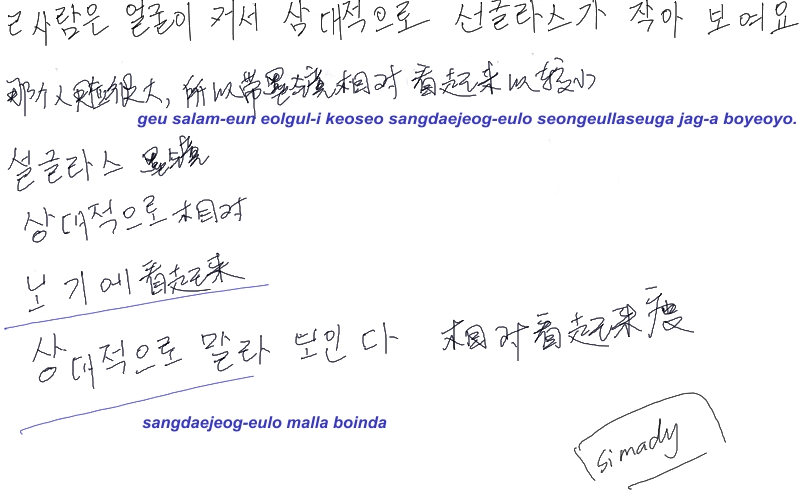 그 사람은 얼굴이 커서 상대적으로 선글라스가 작아 보여요
那个人臉很大, 所以带墨镜相对看起来比较小
geu salam-eun eolgul-i keoseo sangdaejeog-eulo seongeullaseuga jag-a boyeoyo.
선글라스 墨镜
상대적으로 相对
보기에 看起来
상대적으로 말라 보인다 相对看起来瘦
sangdaejeog-eulo malla boinda
simady